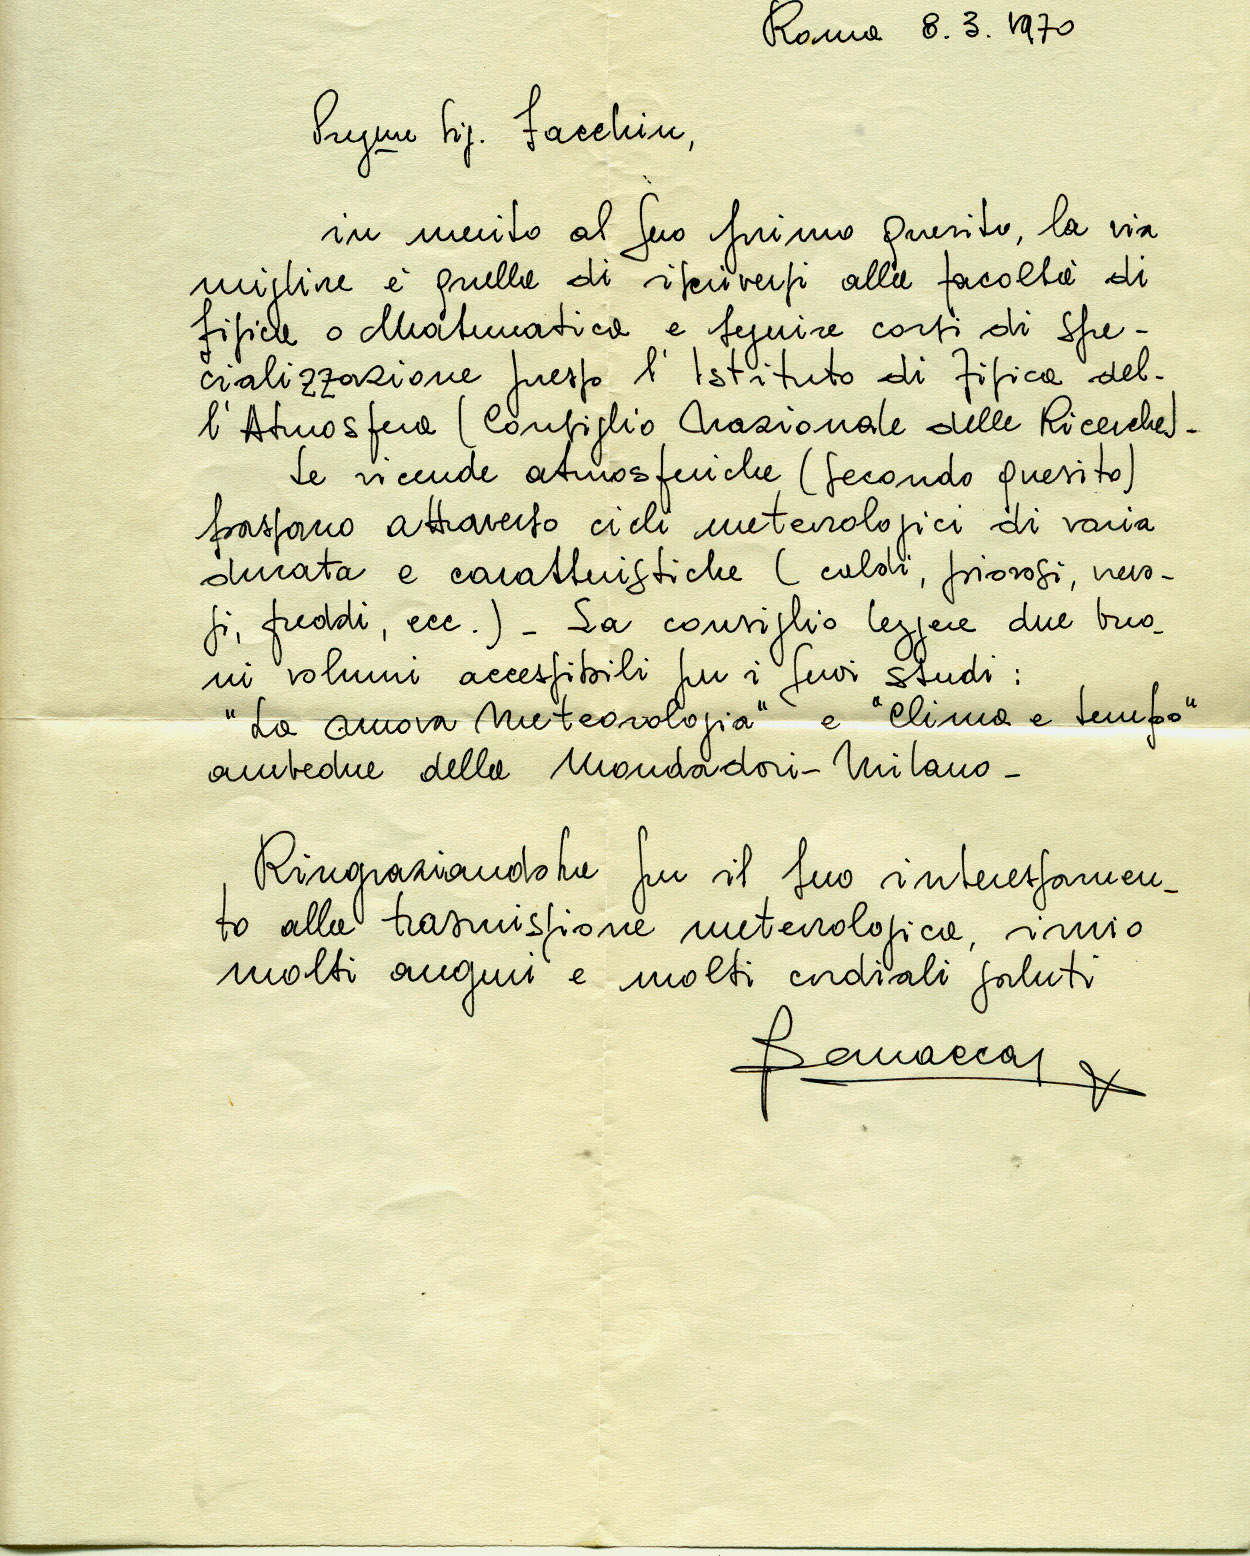 Roma 8.3.1970
Preg.mo Sig. Facchin,
in merito al Suo primo quesito, la via
migliore è quella di iscriversi alla facoltà di
Fisica o Matematica e seguire corsi di spe-
cializzazione presso l'Istituto di Fisica del-
l'Atmosfera (Consiglio Nazionale delle Ricerche) -
Le vicende atmosferiche (secondo quesito)
passano attraverso cicli meteorologici di varia
durata e caratteristiche (caldi, piovosi, nevo-
si, freddi, ecc.) - La consiglio leggere due buo-
ni volumi accessibili per i suoi studi:
"La nuova Meteorologia" e "Clima e tempo"
ambedue della Mondadori - Milano -
Ringraziandola per il Suo interessamen-
to alla trasmissione meteorologica, invio
molti auguri e molti cordiali saluti
Bernacca